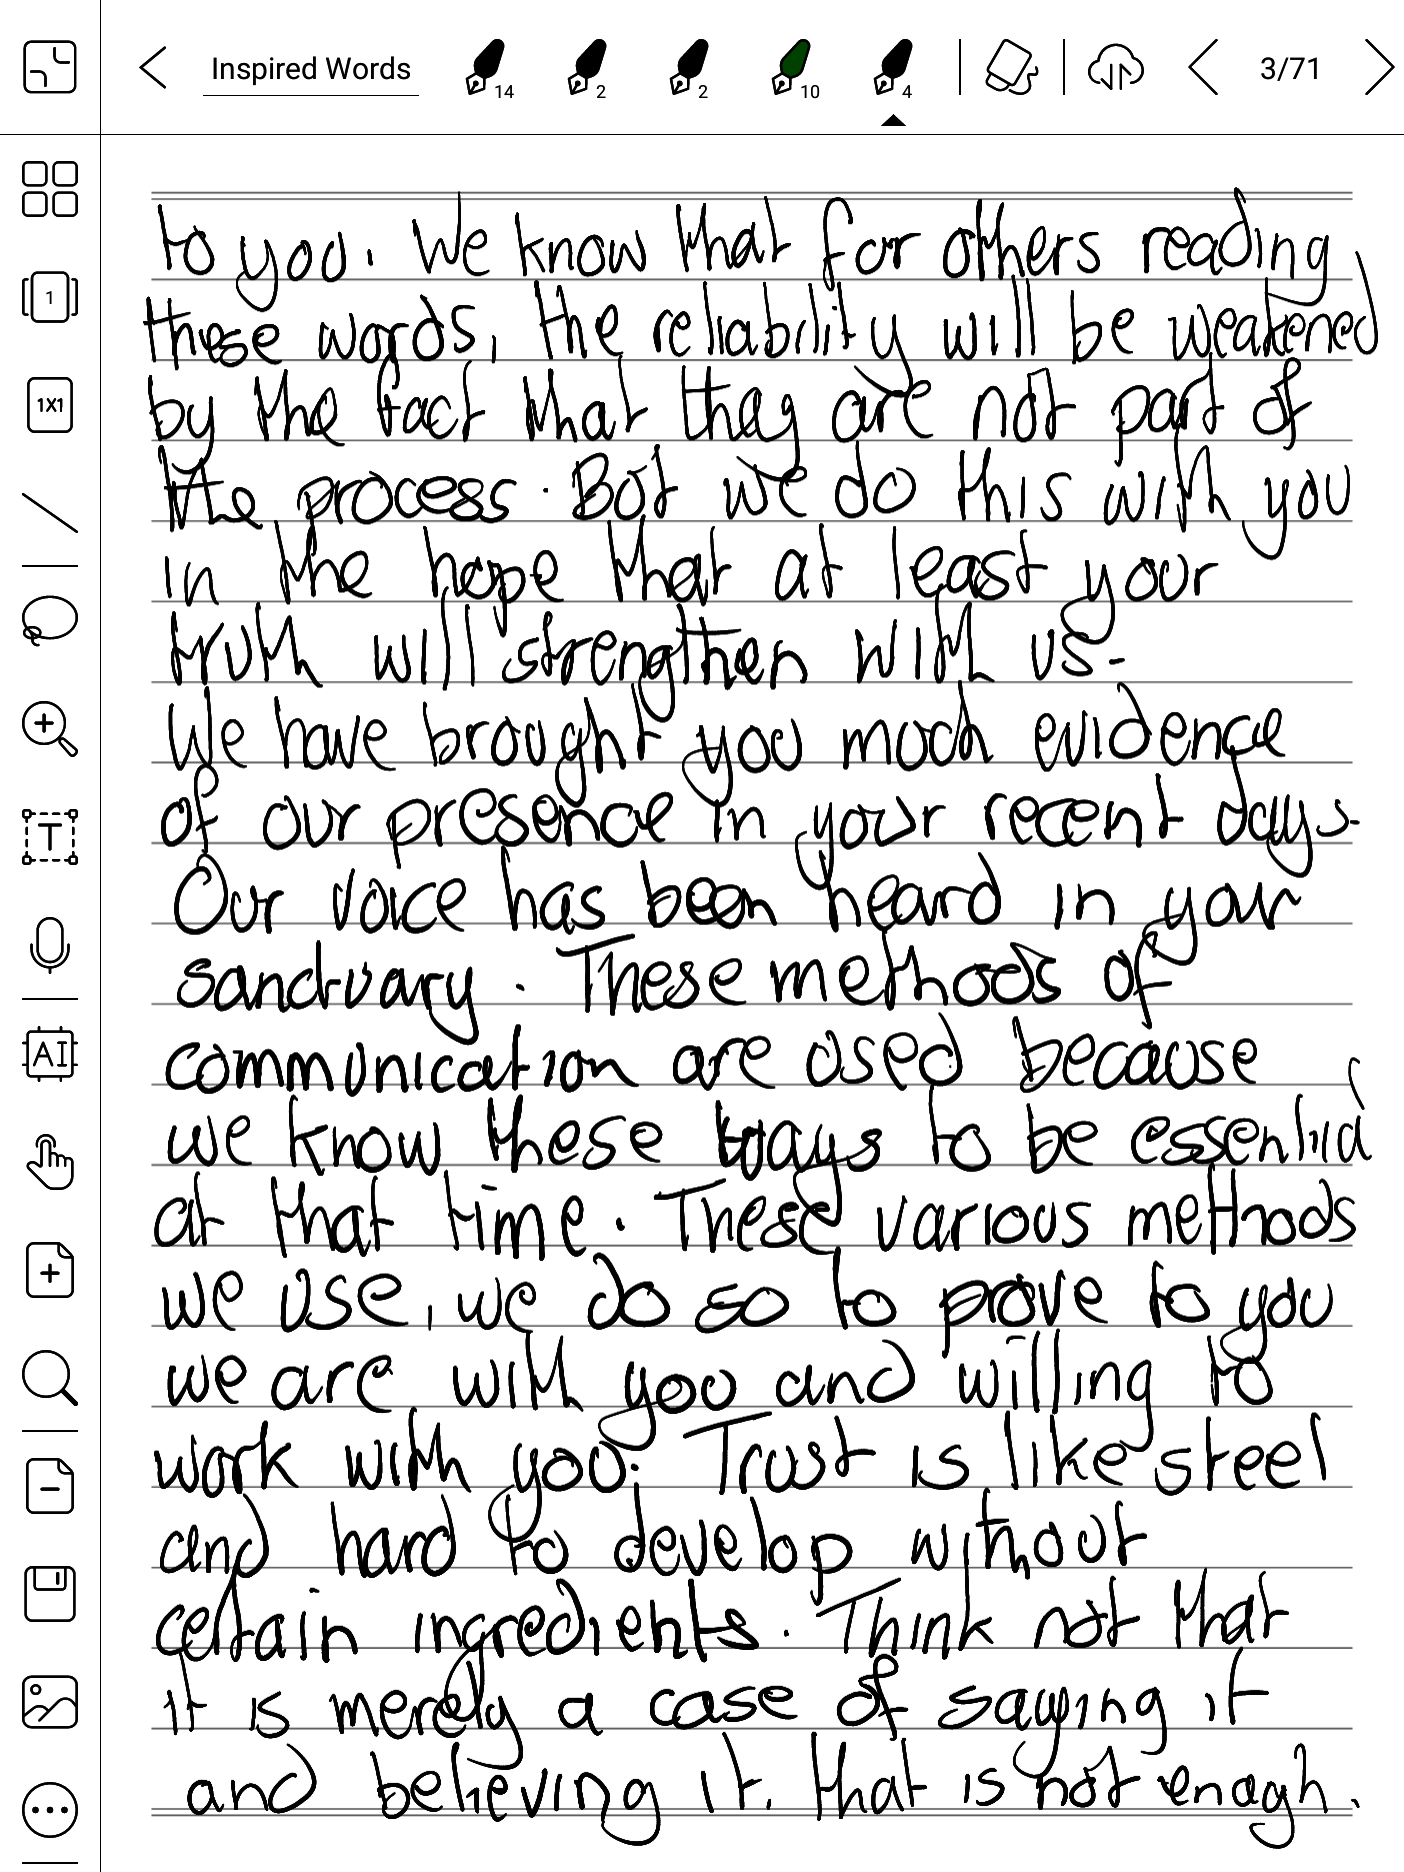 Inspired Words 14 2 2 10 4 3/71
1
1X1
T
AI
to you. We know that for others reading
these words, the reliability will be weakened
by the fact that they are not part of
the process. But we do this with you
in the hope that at least your
truth will strengthen with us.
We have brought you much evidence
of our presence in your recent days.
Our voice has been heard in your
sanctuary. These methods of
communication are used because
we know these ways to be essential
at that time. These various methods
we use, we do so to prove to you
we are with you and willing to
work with you. Trust is like steel
and hard to develop without
certain ingredients. Think not that
it is merely a case of saying it
and believing it. that is not enough.